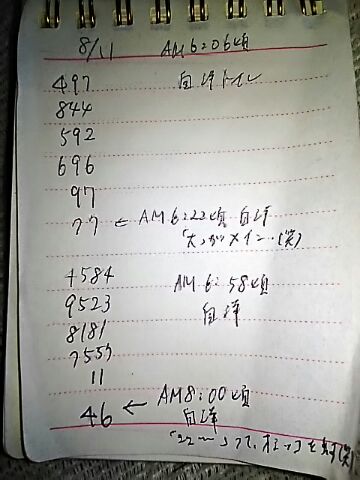 8/11 AM 6:06頃
497 自洋トイレ
844
592
696
97
77 ← AM 6:22頃 自洋
「大」がメイン…(笑)
4584 AM 6:58頃
9523 自洋
8181
7557
11
46 ← AM 8:00頃
自洋
「22〜」って、